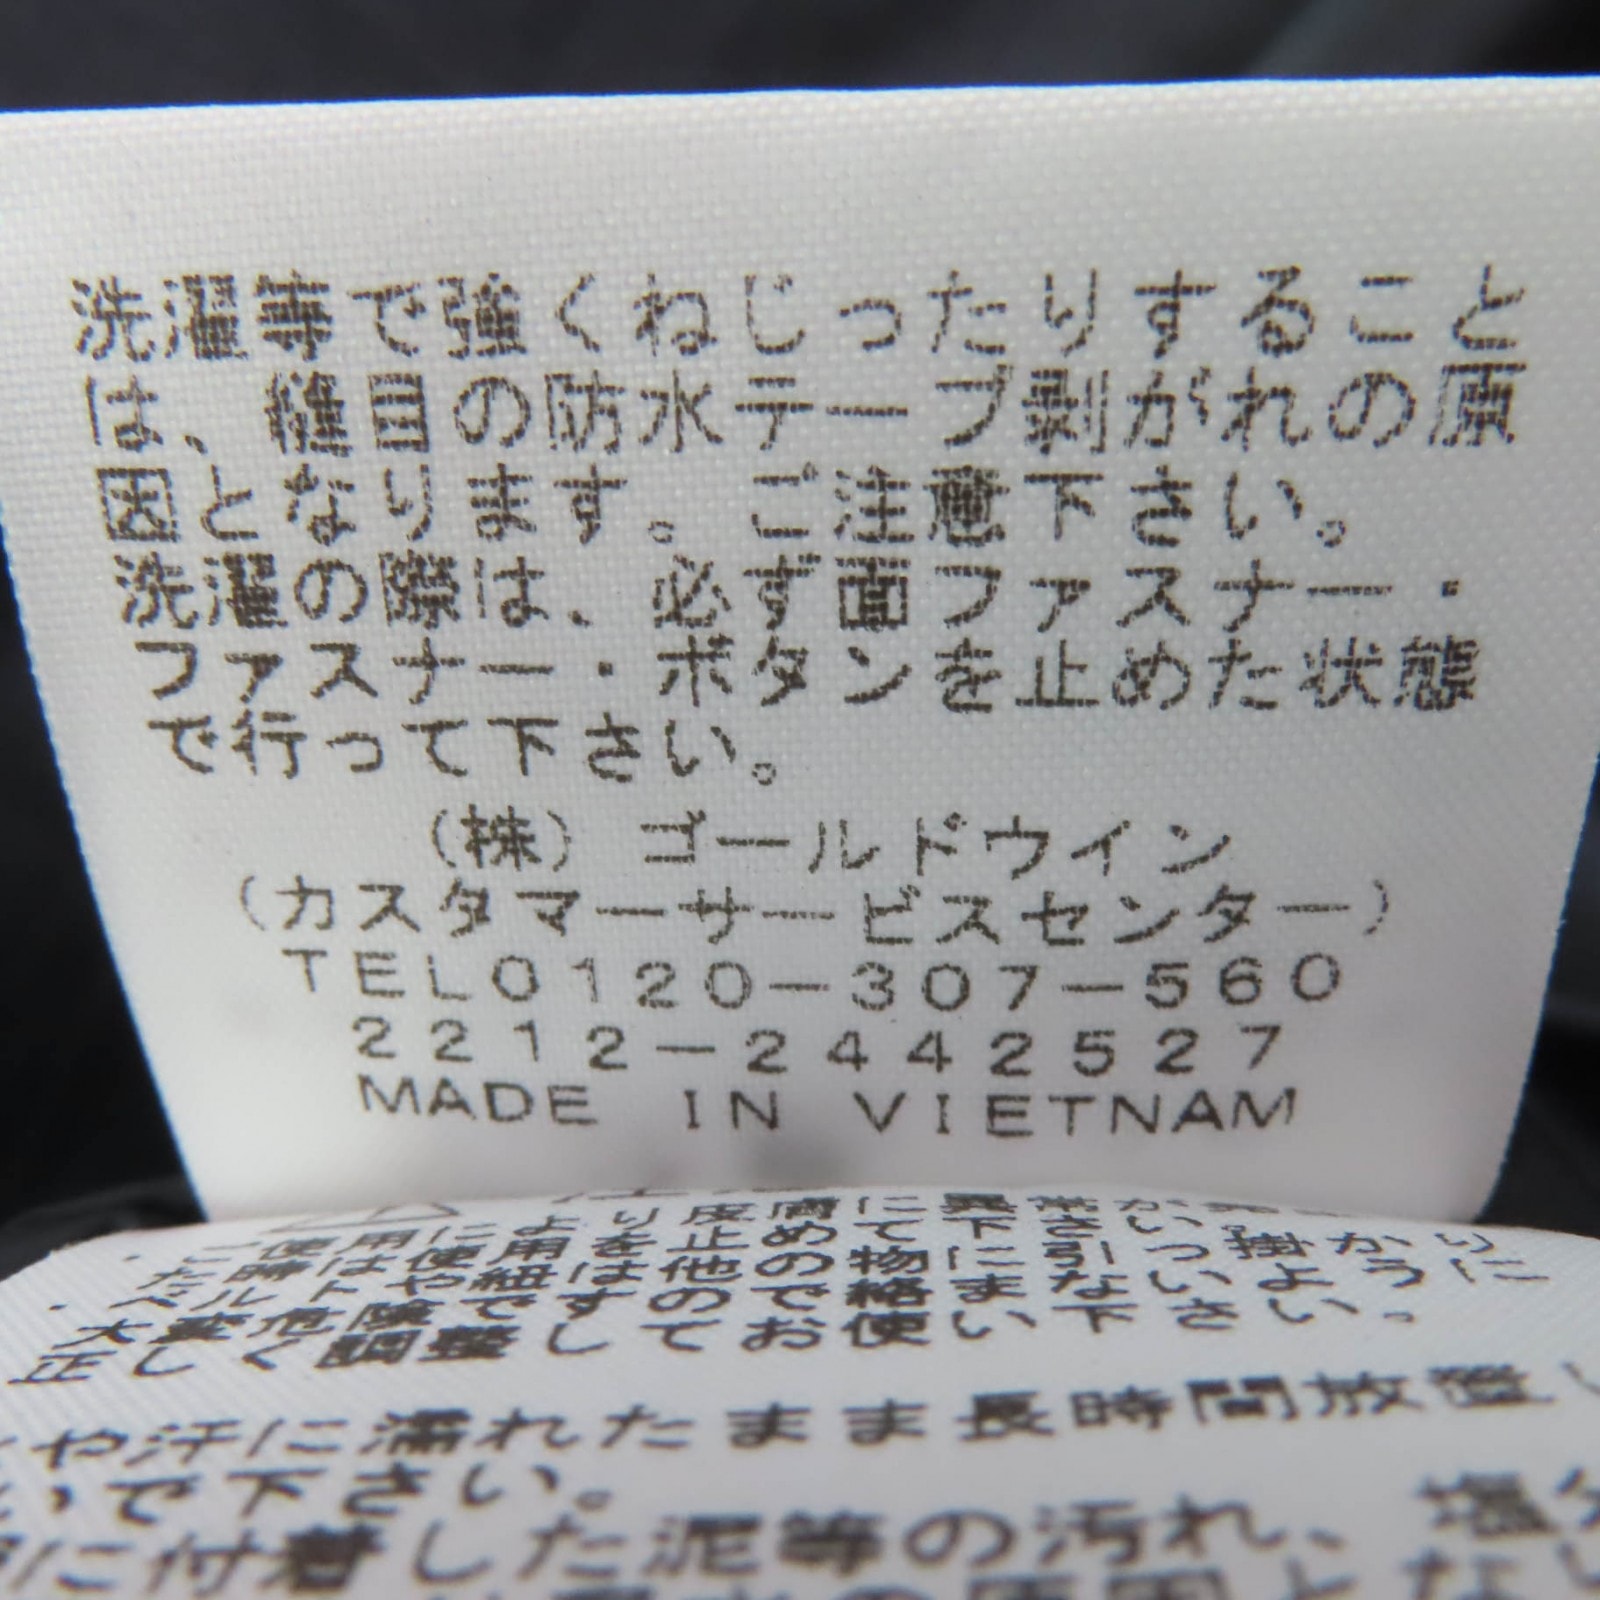 洗濯等で強くねじったりすること
は、縫目の防水テープ剥がれの原
因となります。ご注意下さい。
洗濯の際は、必ず面ファスナー・
ファスナー・ボタンを止めた状態
で行って下さい。
(株)ゴールドウイン
(カスタマーサービスセンター)
TEL0120-307-560
2212-2442527
MADE IN VIETNAM
・ご使用により皮膚に異常が
た時は使用を止めて下さい。
・ベルトや紐は他の物に引っ掛かう
大変危険ですので絡まないよう
正しく調整してお使い下さい。
や汗に濡れたまま長時間放置
いで下さい。
に付着した泥等の汚れ、塩分